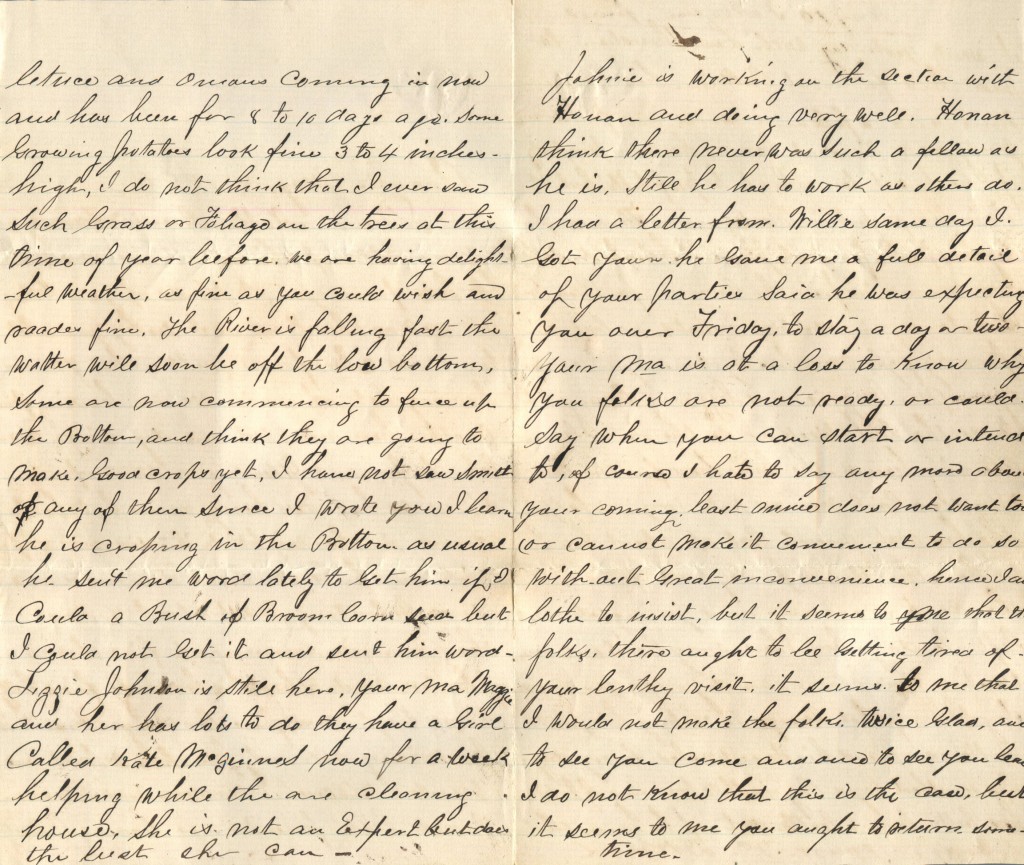 letuce and Onions Coming in now
and has been for 8 to 10 days ago. some
Growing potatoes look fine 3 to 4 inches-
high, I do not think that I ever saw
such Grass or Foliage on the trees at this
time of year before. we are having delight-
-ful weather, as fine as you could wish and
roades fine. The River is falling fast the
watter will soon be off the low bottoms,
some are now commencing to fence up
the Bottom, and think they are going to
make. Good crops yet, I have not saw Smith
or any of them since I wrote you I learn
he is croping in the Bottom as usual
he sent me word lately to Get him if I
Could a Bush of Broom Corn seed but
I Could not Get it and sent him word-
Lizzie Johnson is still here, your ma Maggie
and her has lots to do they have a Girl
Called Kate McGinnes now for a week
helping while the are cleaning
house, she is not an Expert but does
the best she can -
Johnie is working on the section with
Honan and doing very well. Honan
think there never was such a fellow as
he is. Still he has to work as others do.
I had a letter from. Willie same day I.
Got your. he Gave me a full detail
of your parties Said he was expecting
you over Friday, to stay a day or two-
your Ma is at a loss to Know why
you folks are not ready. or could-
say when you can start or intend
to, of course I hate to say any more about
your coming, least annie does not want too
or cannot make it convenient to do so
with-out Great inconvenience, hence I am
lothe to insist, but it seems to me that
folks. there aught to be Getting tired of-
your lenthy visit. it seems to me that
I would not make the folks. twice Glad, one
to see you come and one to see you leave
I do not Know that this is the case, but
it seems to me you aught to return some-
time.-